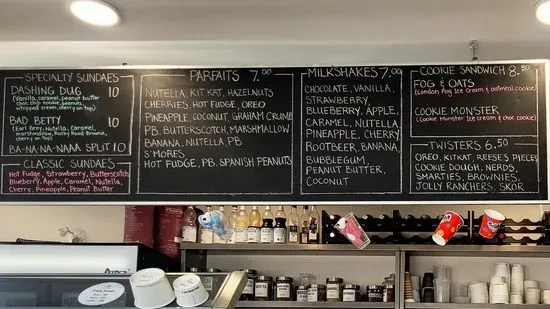 SPECIALTY SUNDAES
DASHING DUG 10
(Vanilla, caramel, peanut butter
choc chip cookie, peanuts,
whipped cream, cherry on top)
BAD BETTY 10
(Earl Grey, Nutella, Caramel,
marshmallow, Rocky Road Brownie,
cherry on top)
BA-NA-NA-NAAA SPLIT 10
CLASSIC SUNDAES
Hot Fudge, Strawberry, Butterscotch
Blueberry, Apple, Caramel, Nutella,
Cherry, Pineapple, Peanut Butter
PARFAITS 7.00
NUTELLA, KIT KAT, HAZELNUTS
CHERRIES, HOT FUDGE, OREO
PINEAPPLE, COCONUT, GRAHAM CRUMB
PB, BUTTERSCOTCH, MARSHMALLOW
BANANA, NUTELLA, PB
S'MORES
HOT FUDGE, PB, SPANISH PEANUTS
MILKSHAKES 7.00
CHOCOLATE, VANILLA,
STRAWBERRY,
BLUEBERRY, APPLE,
CARAMEL, NUTELLA,
PINEAPPLE, CHERRY
ROOTBEER, BANANA,
BUBBLEGUM,
PEANUT BUTTER,
COCONUT
COOKIE SANDWICH 8.50
FOG & OATS
(London Fog Ice cream & oatmeal cookie)
COOKIE MONSTER
(Cookie Monster Ice cream & choc cookie)
TWISTERS 6.50
OREO, KITKAT, REESE'S PIECES
COOKIE DOUGH, NERDS,
SMARTIES, BROWNIES,
JOLLY RANCHERS, SKOR